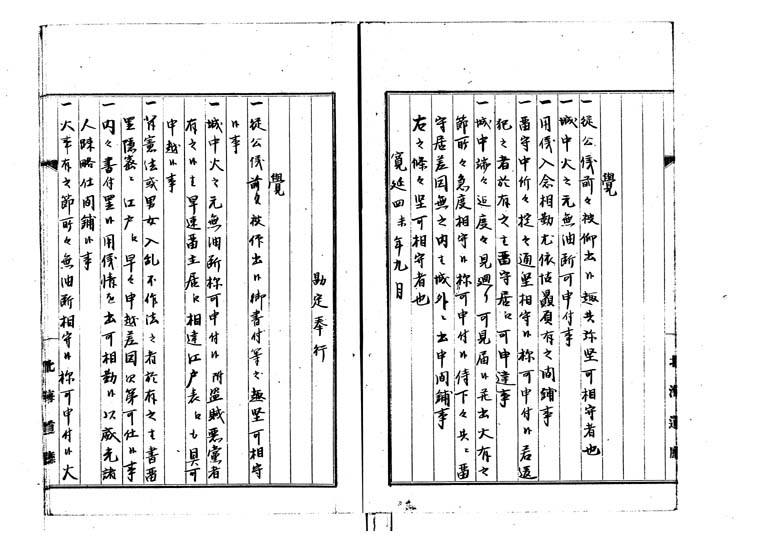 覺
一従公儀前々被仰出候趣共弥堅可相守者也
一城中火之元無油断可申付事
一用儀入念相勤尤依怙贔屓有之間鋪事
一番守中所々掟之通堅相守候祢可申付候若違
犯之者於有之者番守居江可申達事
一城中端々迄度々見廻り可見届候
節所々急度相守候祢可申付候侍下々共ニ番
守居差図無之内者城外ニ出申間鋪事
右之條々堅可相守者也
寛延四未年九月
勘定奉行
覺
一従公儀前々被仰出候御書付等之趣堅可相守
候事
一城中火之元無油断祢可申付候附盗賊悪黨者
有之候者早速番主居江相達江戸表江も具可
申越候事
一背憲法或男女入乱不作法之者於有之者書番
置隠密ニ江戸江早々申越差図次第可仕候事
一内々書付置候用儀情を出可相勤候以威光諸
人踈略仕間鋪候事
一火事有之節所々無油断相守候祢可申付候火
北海道廳